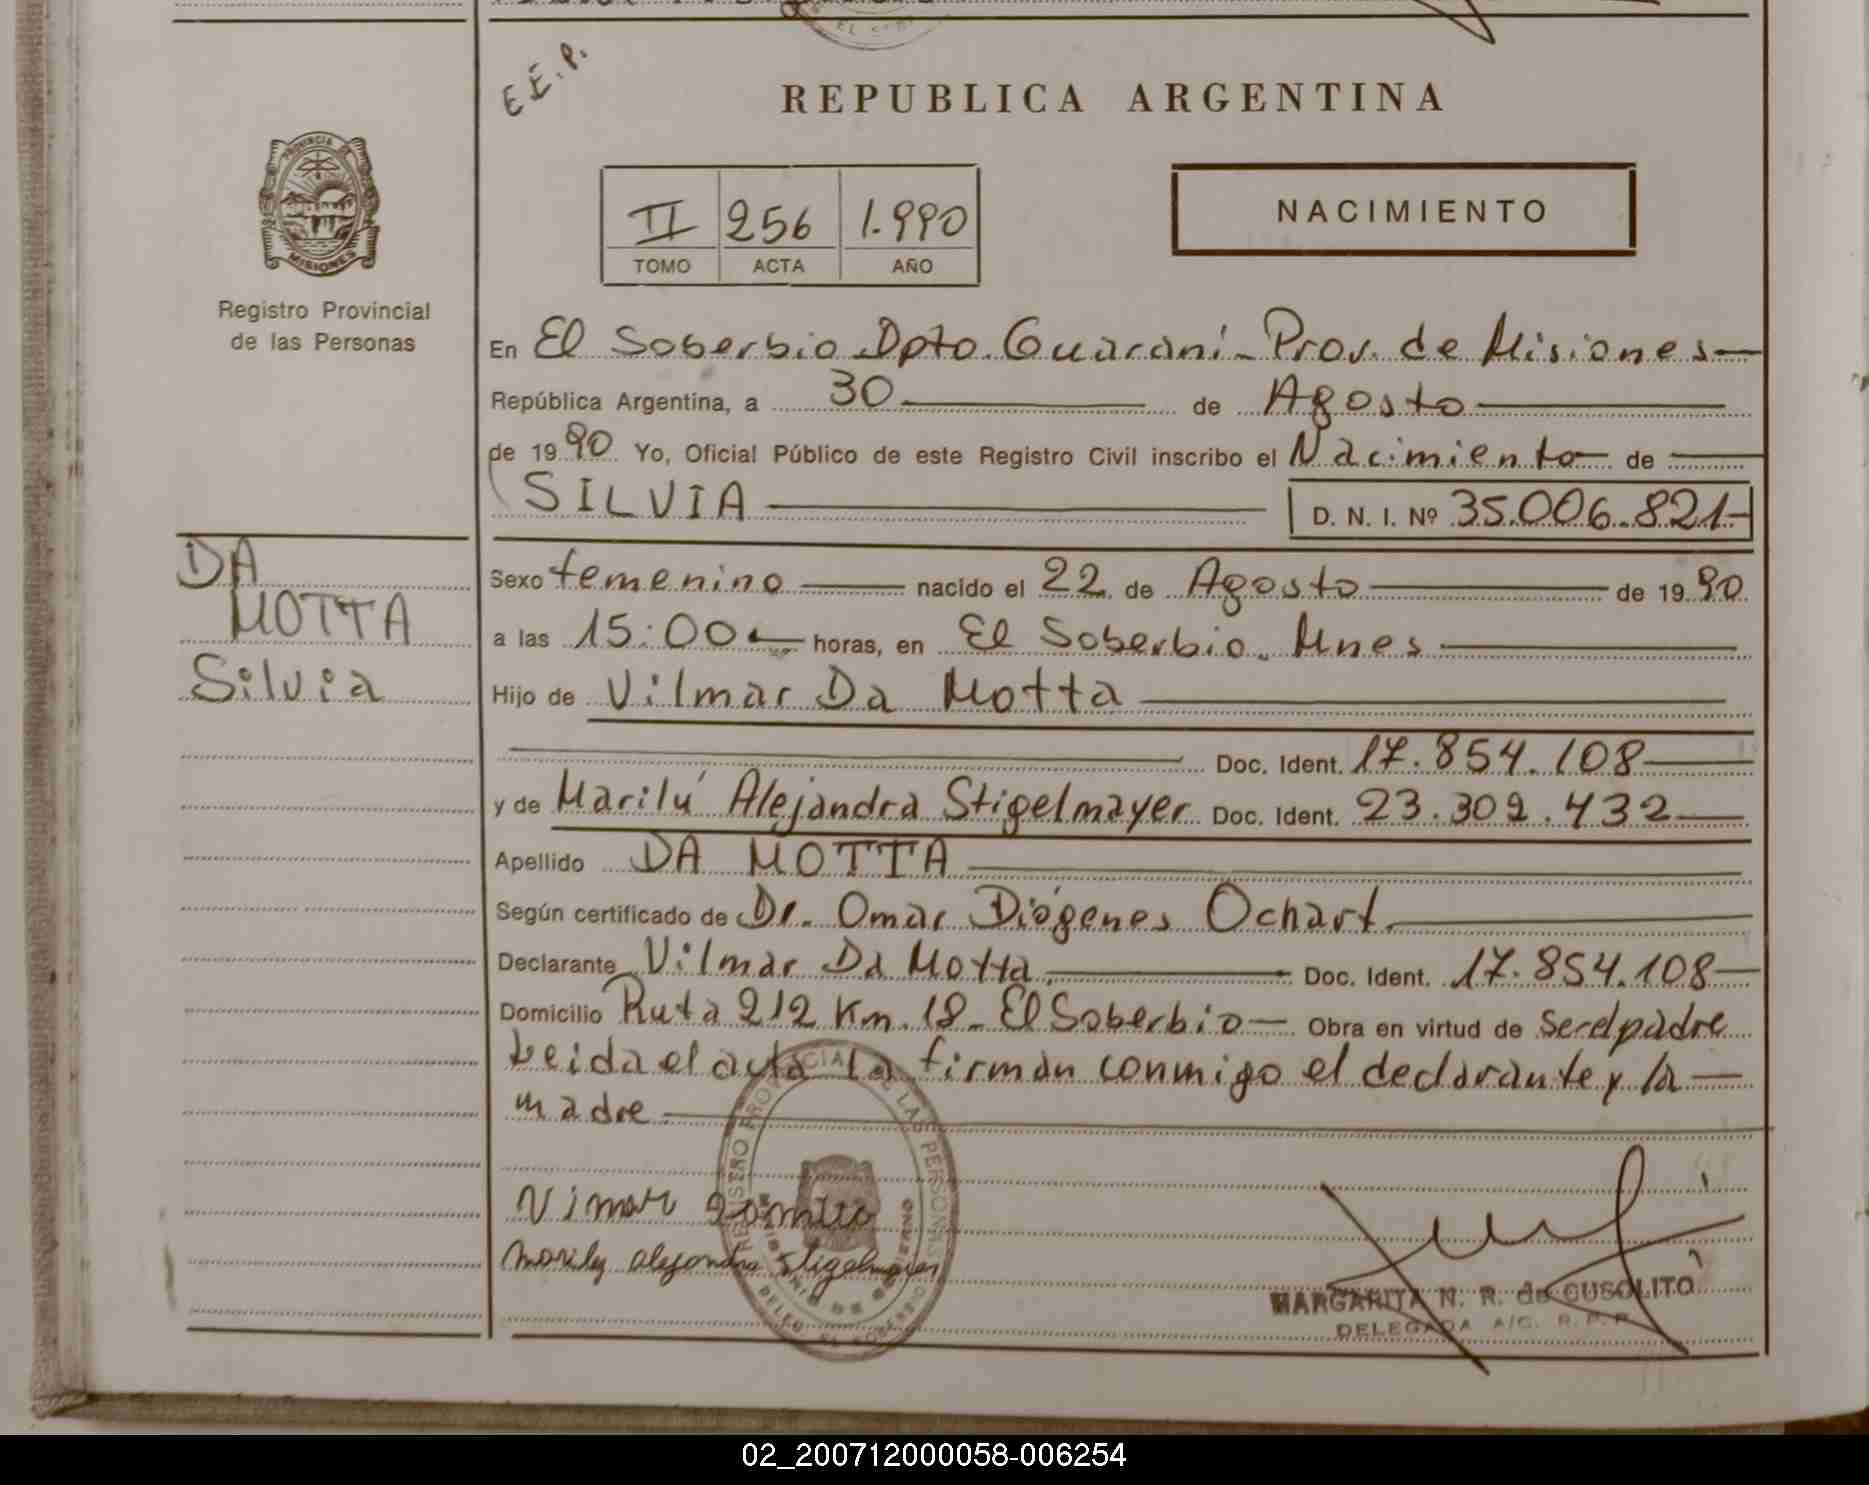 E.E.P.
REPUBLICA ARGENTINA
PROVINCIA DE
MISIONES
Registro Provincial
de las Personas
II 256 1.990
TOMO ACTA AÑO
NACIMIENTO
En El Soberbio Dpto. Guaraní - Prov. de Misiones
República Argentina, a 30 de Agosto
de 1990 Yo, Oficial Público de este Registro Civil inscribo el Nacimiento de
SILVIA D. N. I. Nº 35.006.821-
DA
MOTTA
Silvia
Sexo femenino nacido el 22 de Agosto de 1990
a las 15:00 horas, en El Soberbio. Mnes
Hijo de Vilmar Da Motta
Doc. Ident. 17.854.108
y de Marilú Alejandra Stigelmayer Doc. Ident. 23.302.432
Apellido DA MOTTA
Según certificado de Dr. Omar Diógenes Ochart.
Declarante Vilmar Da Motta. Doc. Ident. 17.854.108
Domicilio Ruta 212 Km. 18 - El Soberbio - Obra en virtud de Ser el padre
Leida el acta la firman conmigo el declarante y la
madre
REGISTRO PROVINCIAL DE LAS PERSONAS
DELEG. EL SOBERBIO
Vimar Damotta
Marilu Alejandra Stigelmayer
MARGARITA N. R. de CUSOLITO
DELEGADA A/C. R.P.P.
02_200712000058-006254